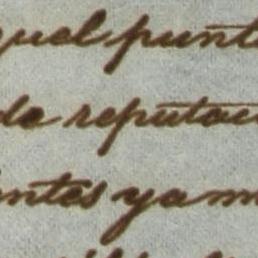 quel punt
de reputac
entes ya m